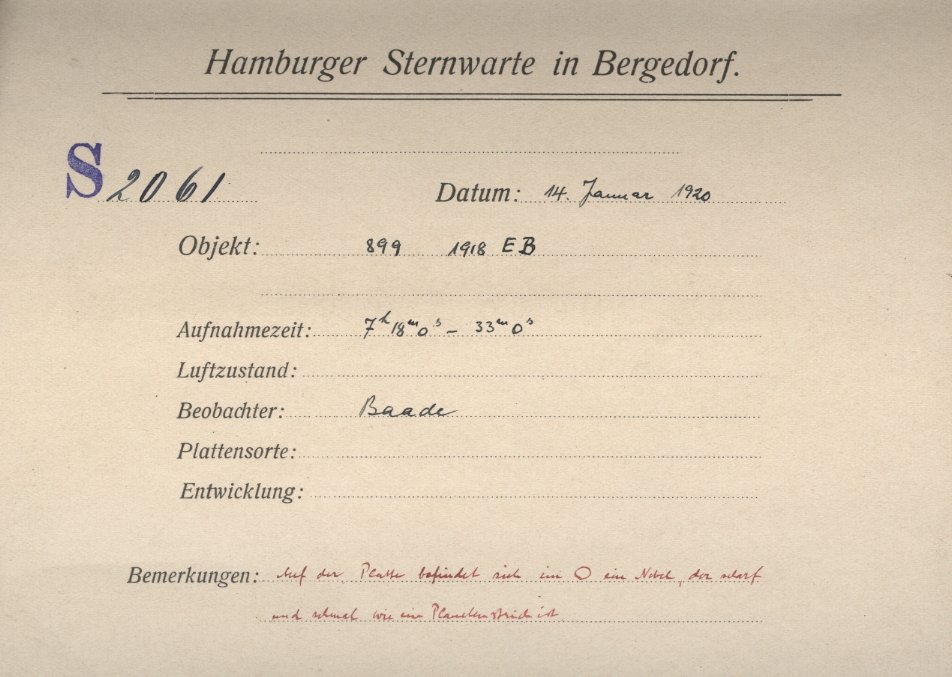 Hamburger Sternwarte in Bergedorf.
S 2061
Datum: 14. Januar 1920
Objekt: 899 1918 EB
Aufnahmezeit: 7h 18m 0s – 33m 0s
Luftzustand:
Beobachter: Baade
Plattensorte:
Entwicklung:
Bemerkungen: Auf der Platte befindet sich im O ein Nebel, der scharf
und schmal wie ein Planetenstrich ist.